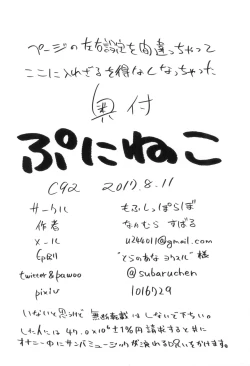 ページの左右設定を間違っちゃって
ここに入れざるを得なくなっちゃった
奥付
ぷにねこ
C92 2017.8.11
サークル もふしっぽらぼ
作者 なかむら すばる
メール u244011@gmail.com
印刷 "とらのあな ヨウスパ" 様
twitter&pawoo @subaruchen
pixiv 1016429
いないと思うけど 無断転載はしないで下ちい。
した人には 47.0×10⁶±1%円 請求すると共に
オナニー中にサンバミュージックが流れる呪いをかけます。